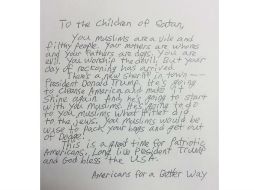 To the Children of Satan,
You muslims are a vile and
filthy people. Your mothers are whores
and your fathers are dogs. You are
evil. You worship the devil. But your
day of reckoning has arrived.
There's a new sheriff in town —
President Donald Trump. He's going
to cleanse America and make it
shine again. And, he's going to start
with you Muslims. He's going to do
to you muslims what Hitler did
to the jews. You muslims would be
wise to pack your bags and get out
of Dodge.
This is a great time for Patriotic
Americans. Long live President Trump
and God bless the USA.
Americans for a Better Way